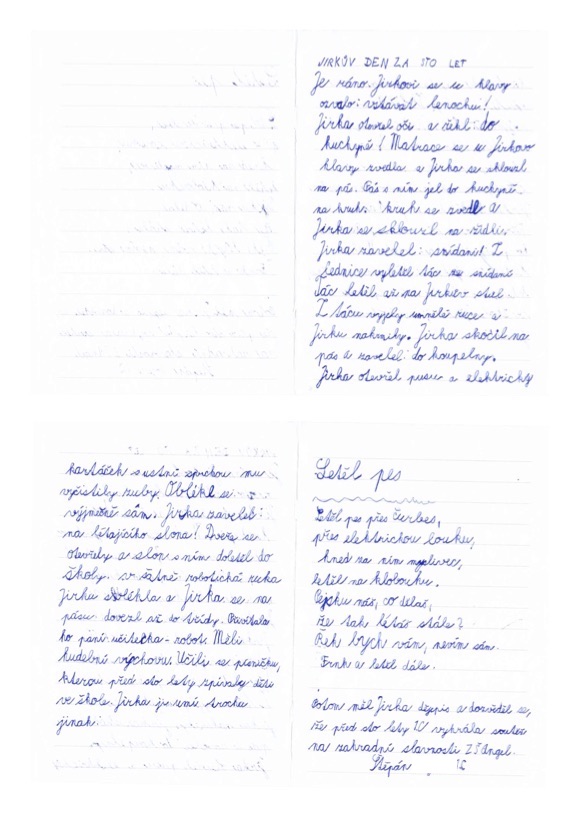 JIRKŮV DEN ZA STO LET
Je ráno. Jirkovi se u hlavy
ozvalo: vstávát lenochu!
Jirka otevřel oči a řekl: do
kuchyně! Matrace se u Jirkovo
hlavy zvedla a Jirka se sklouzl
na pás. Pás s ním jel do kuchyně
na kruh. kruh se zvedl a
Jirka se sklouzl na židli.
Jirka zavelel: snídani! Z
lednice vyletěl tác se snídaní
Tác letěl až na Jirkův stůl
Z tácu vyjely umělé ruce a
Jirku nakrmily. Jirka skočil na
pás a zavelel: do koupelny.
Jirka otevřel pusu a elektrický
kartáček s ustní sprchou mu
vyčistily zuby. Oblékl se
výjmečně sám. Jirka zavelel:
na létajícího slona! Dveře se
otevřely a slon s ním doletěl do
školy. v šatně robotická ruka
Jirku svlékla a Jirka se na
pásu dovezl až do třídy. Přivítala
ho paní učitelka - robot. Měli
hudební výchovu. Učili se písničku,
kterou před sto lety zpívaly děti
ve škole. Jirka ji umí trochu
jinak:
Letěl pes
Letěl pes přes
přes elektrickou louku,
hned za ním
letěl na klobouku.
Pejsku náš, co děláš,
že tak létáš stále?
Řek bych vám, nevím sám.
Frnk a letěl dále.
Potom měl Jirka dějpis a dozvěděl se,
že před sto lety IC vyhrála soutěž
na zahradní slavnosti ZŠ Angel.
Štěpán IC